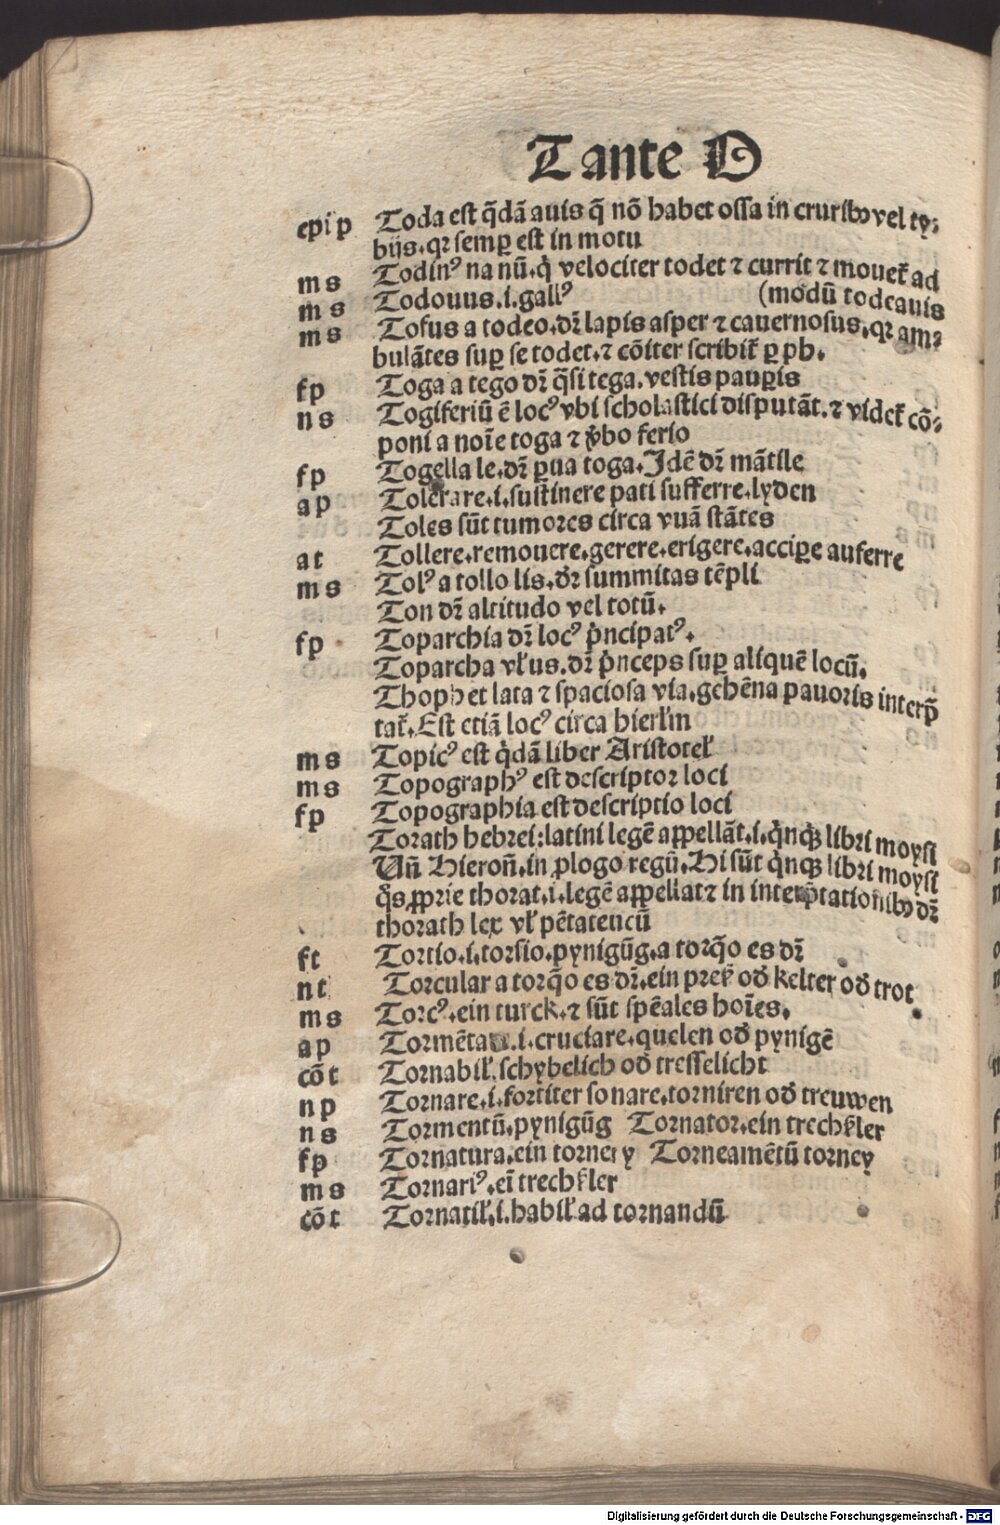 Tante O
epi p Toda est q̄dā auis q̄ nō habet ossa in cruribꝯ vel ty-
bijs. qꝛ semꝑ est in motu
m s Todinꝰ na nū. q̇ velociter todet ⁊ currit ⁊ mouet᷑ ad
m s Todouus .i. gallꝰ (modū todeauis
m s Tofus a todeo. dr̄ lapis asper ⁊ cauernosus. qꝛ am-
bulātes suꝑ se todet. ⁊ cōiter scribit᷑ ꝑ ph.
f p Toga a tego dr̄ q̄si tega. vestis pauꝑis
n s Togiferiū ē locꝰ vbi scholastici disputāt. ⁊ videt᷑ cō-
poni a noīe toga ⁊ v̇bo ferio
f p Togella le. dr̄ ꝑua toga. Idē dr̄ mātile
a p Tolerare .i. sustinere pati sufferre. lyden
Toles sūt tumores circa vuā stātes
a t Tollere. remouere. gerere. erigere. acciꝑe auferre
m s Tolꝰ a tollo lis. dr̄ summitas tēpli
Ton dr̄ altitudo vel totū.
f p Toparchia dr̄ locꝰ ṗncipatꝰ.
Toparcha vl̓us. dr̄ ṗnceps suꝑ aliquē locū.
Thophet lata ⁊ spaciosa via. gehēna pauoris interp̄
tat᷑. Est etiā locꝰ circa hierl̓m
m s Topicꝰ est q̇dā liber Aristotel̓
m s Topographꝰ est descriptor loci
f p Topographia est descriptio loci
Torath hebrei: latini legē aꝓpellāt .i. q̇nqꝫ libri moysi
Uñ Hieroñ. in ꝓlogo regū. Hi sūt q̇nqꝫ libri moysi
q̇s ꝓprie thorat .i. legē appellat⁊ in interp̄tationibꝯ dr̄
thorath lex vl̓ pētateucū
f t Tortio .i. torsio. pynigūg. a torq̄o es dr̄
n t Torcular a torq̄o es dr̄. ein preß od̓ kelter od̓ trot
m s Torcꝰ. ein turck. ⁊ sūt spēales hoīes.
a p Tormēta .i. cruciare. quelen od̓ pynigē
cō t Tornabil̓. schybelich od̓ tresselicht
n p Tornare .i. fortiter sonare. torniren od̓ treuwen
n s Tormentū. pynigūg Tornator. ein trechßler
f p Tornatura. ein torney Torneamētū torney
m s Tornariꝰ. eī trechßler
cō t Tornatil̓ .i. habil̓ ad tornandū
Digitalisierung gefördert durch die Deutsche Forschungsgemeinschaft - DFG